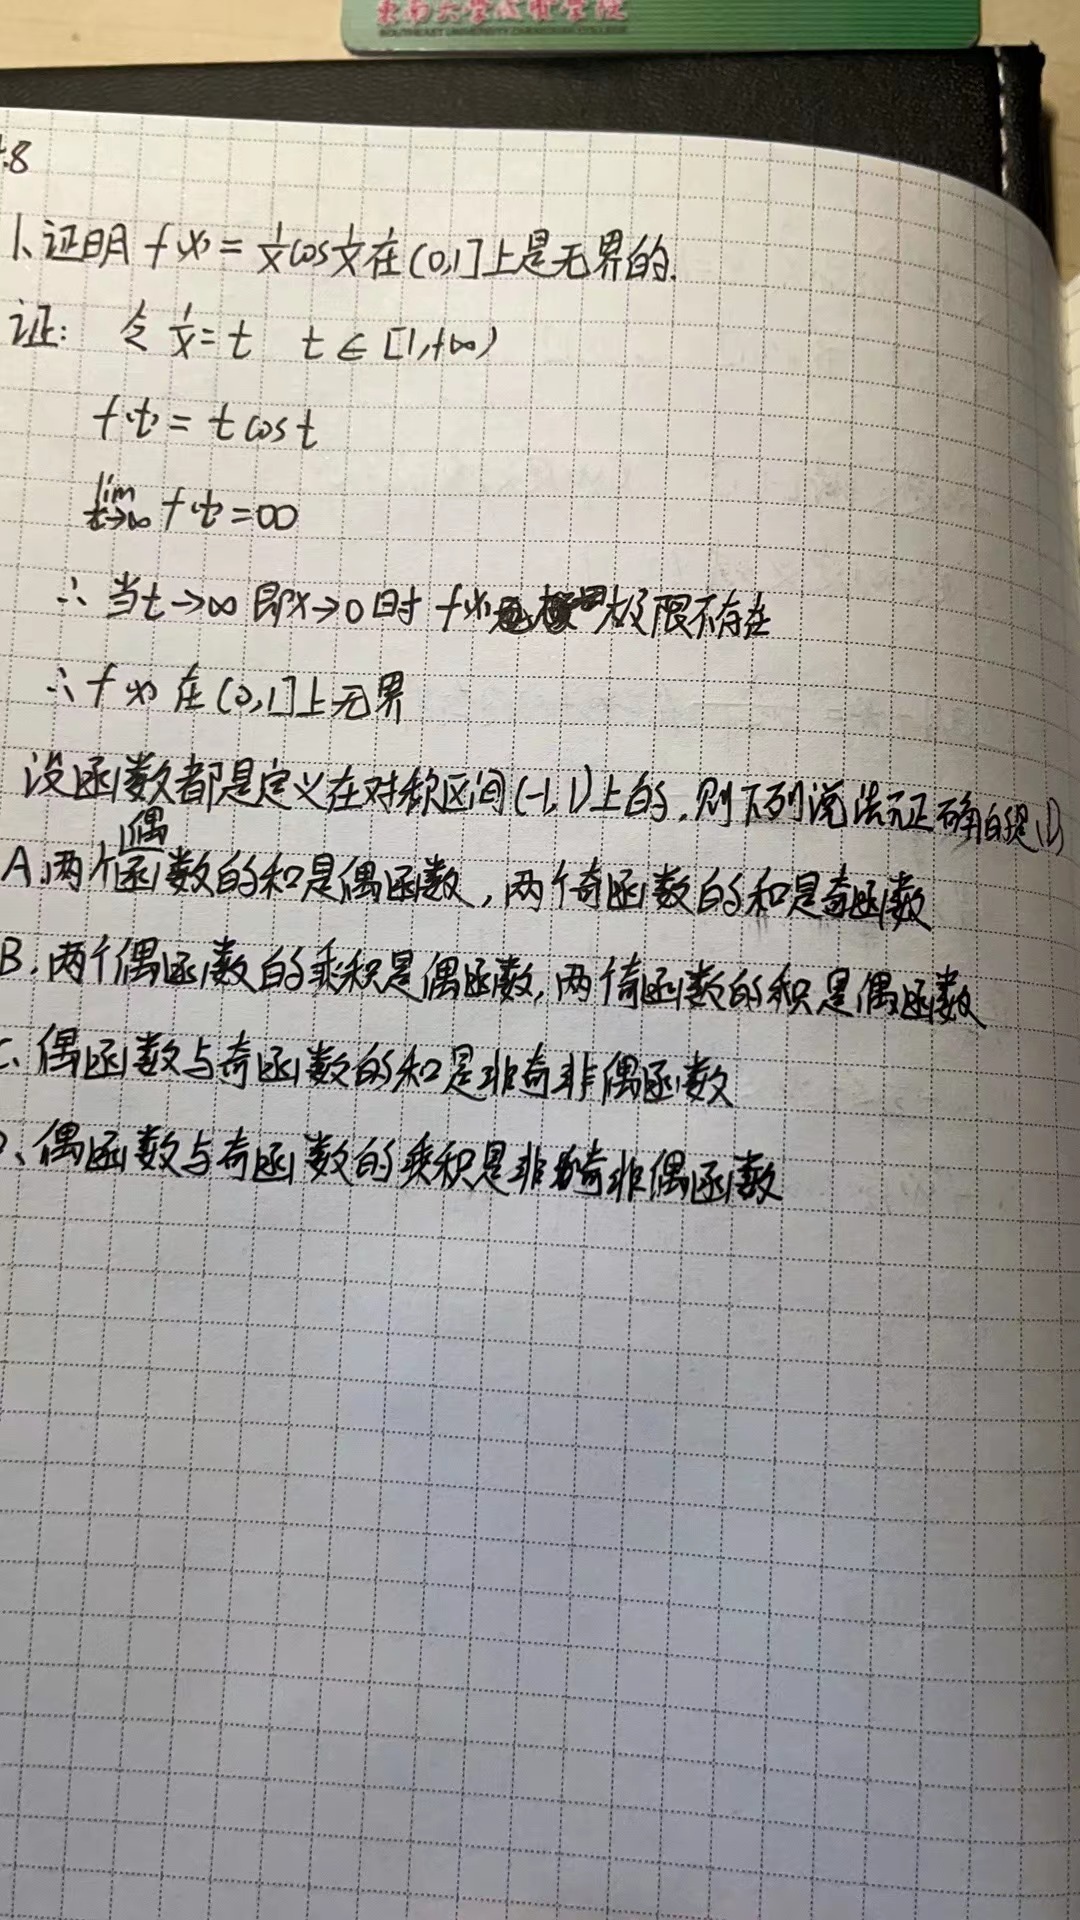 東南大學成賢學院
SOUTHEAST UNIVERSITY CHENGXIAN COLLEGE
.8
1、证明 f(x) = 1/x cos 1/x 在(0,1]上是无界的.
证: 令 1/x = t t ∈ [1,+∞)
f(t) = t cos t
lim t→∞ f(t) = ∞
∴ 当t→∞ 即x→0时 f(x) 极限不存在
∴ f(x) 在(0,1]上无界
设函数都是定义在对称区间(-1,1)上的,则下列说法不正确的是(D
A.两个偶函数的和是偶函数,两个奇函数的和是奇函数
B.两个偶函数的乘积是偶函数,两个奇函数的积是偶函数
C、偶函数与奇函数的和是非奇非偶函数
D、偶函数与奇函数的乘积是非奇非偶函数